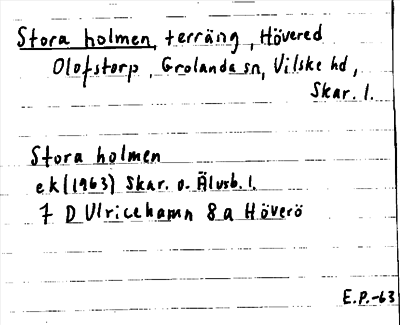 Stora holmen, terräng, Hövered
Olofstorp, Grolanda sn, Vilske hd,
Skar. l.
Stora holmen
ek (1963) Skar. o. Älvsb. l.
7 D Ulricehamn 8a Höverö
E.P.-63